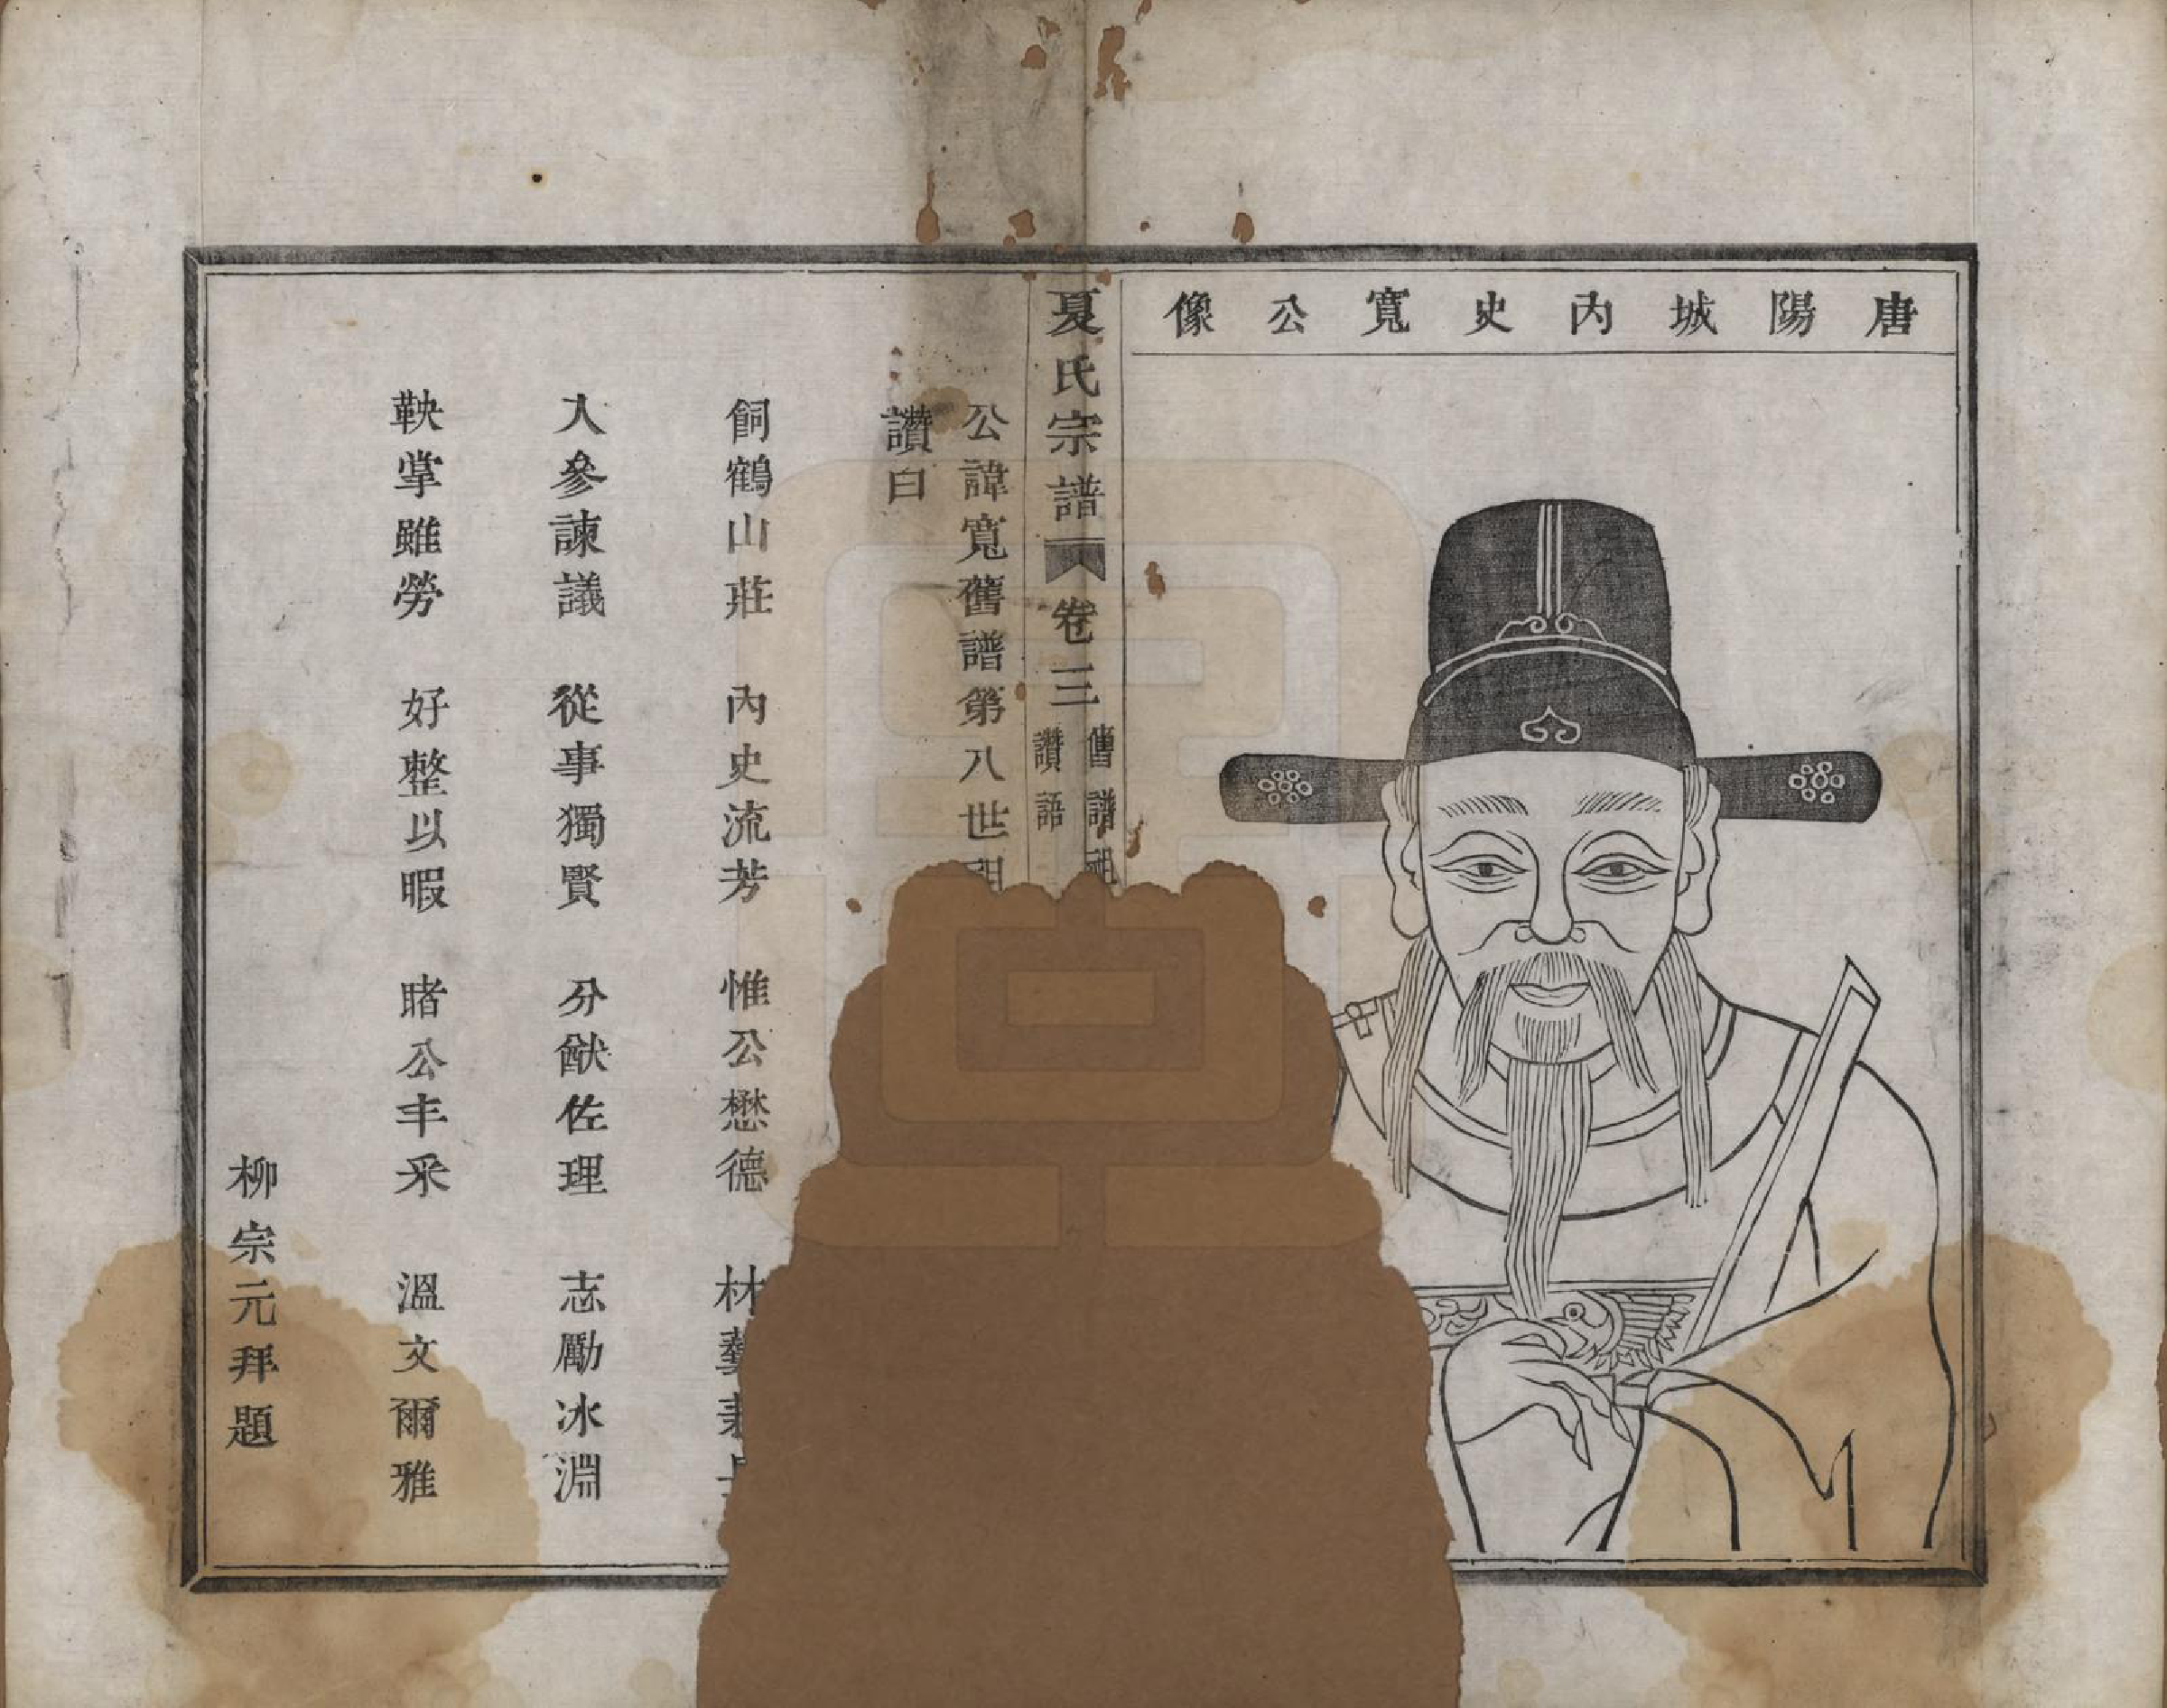 唐陽城內史寬公像
夏氏宗譜 卷三
舊譜祖
讚語
公諱寬舊譜第八世祖
讚曰
飼鶴山莊 內史流芳 惟公懋德 林藝
入參諫議 從事獨賢 分猷佐理 志勵冰淵
鞅掌雖勞 好整以暇 睹公丰采 溫文爾雅
柳宗元拜題